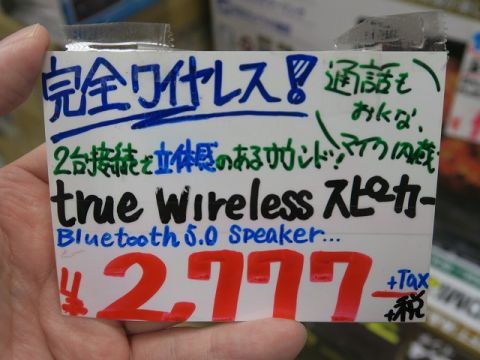 完全ワイヤレス!
通話も
おkな、
マイク内蔵
2台接続で立体感のあるサウンド!
true wireless スピーカー
Bluetooth 5.0 Speaker...
¥2,777
+Tax
+税